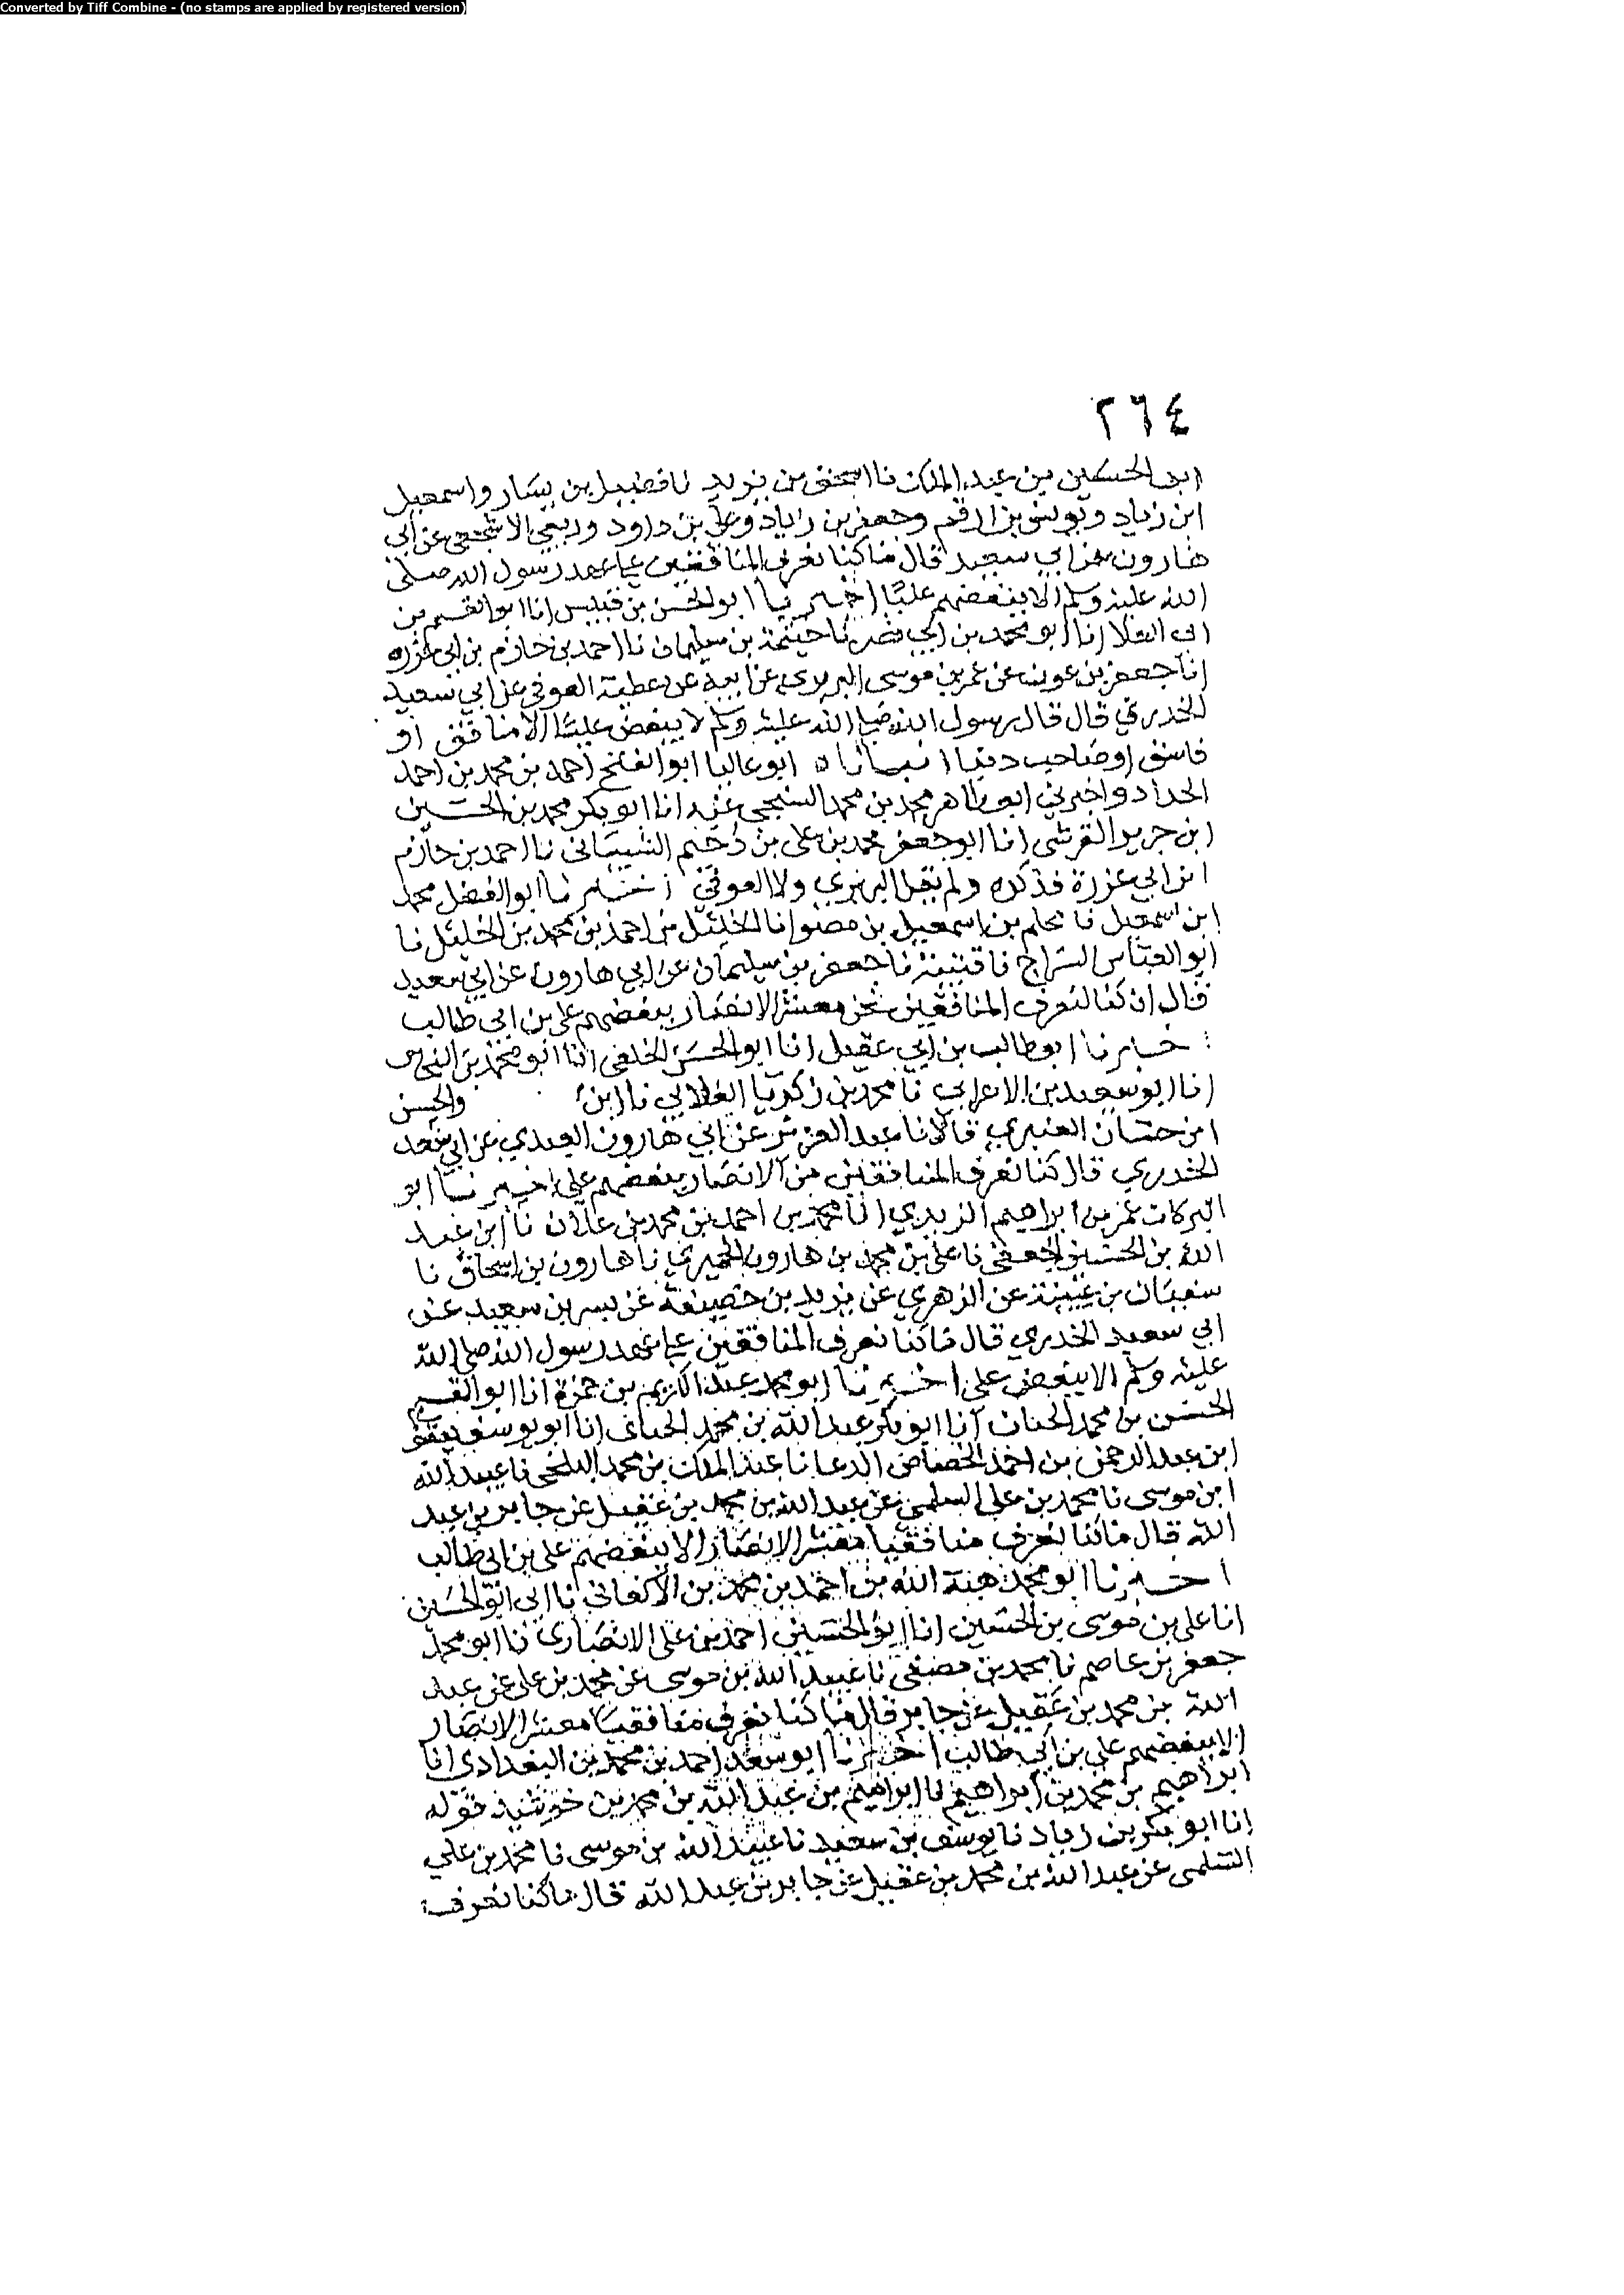 Converted by Tiff Combine - (no stamps are applied by registered version)
٢٦٤
ابن الحسين بن عبد الملك نا اسحق بن يزيد نا فضيل بن يسار واسمعيل
ابن زياد ويونس بن ارقم وجعفر بن زياد وعلي بن داود وربعي الاشجعي عن ابي
هارون عن ابي سعيد قال ما كنا نعرف المنافقين على عهد رسول الله صلى
الله عليه وسلم الا ببغضهم عليا اخبرنا ابو الحسن بن قبيس انا ابو القسم بن
ابي العلا انا ابو محمد بن ابي نصر نا خيثمة بن سليمان نا احمد بن حازم بن ابي غرزه
انا جعفر بن عون عن عمر بن موسى البربري عن ابيه عن عطية العوفي عن ابي سعيد
الخدري قال قال رسول الله صلى الله عليه وسلم لا يبغض عليا الا منافق او
فاسق او صاحب دنيا انبانا ابو عاليا ابو الفتح احمد بن محمد بن احمد
الحداد واخبرني ابو طاهر محمد بن محمد السنجي عنه انا ابو بكر محمد بن الحسين
ابن جرير القرشي انا ابو جعفر محمد بن علي بن دحيم الشيباني نا احمد بن حازم
ابن ابي عزرة فذكره ولم يقل البربري ولا العوفي اخبرنا ابو الفضل محمد
ابن اسمعيل نا محلم بن اسمعيل بن مضر انا الخليل بن احمد بن محمد بن الخليل نا
ابو العباس السراج نا قتيبة نا جعفر بن سليمان عن ابي هارون عن ابي سعيد
قال ان كنا لنعرف المنافقين نحن معشر الانصار ببغضهم علي بن ابي طالب
اخبرنا ابو طالب بن ابي عقيل انا ابو الحسن الخلعي انا ابو محمد بن النحاس
انا ابو سعيد بن الاعرابي نا محمد بن زكريا الغلابي نا ابن والحسن
ابن حسان العنبري قالا نا عبد العزيز عن ابي هارون العبدي عن ابي سعيد
الخدري قال كنا نعرف المنافقين من الانصار ببغضهم علي اخبرنا ابو
البركات عمر بن ابراهيم الزيدي انا محمد بن احمد بن محمد بن علان نا ابن عبد
الله بن الحسين الجعفي نا علي بن محمد بن هارون الحميري نا هارون بن اسحاق نا
سفيان بن عيينة عن الزهري عن يزيد بن خصيفة عن بسر بن سعيد عن
ابي سعيد الخدري قال ما كنا نعرف المنافقين على عهد رسول الله صلى الله
عليه وسلم الا ببغض علي اخبرنا ابو محمد عبد الكريم بن حمزة انا ابو القسم
الحسين بن محمد الحنائي انا ابو بكر عبد الله بن محمد الحنائي انا ابو يوسف يعقوب
ابن عبد الرحمن بن احمد الخصاص الدعا نا عبد الملك بن محمد البلخي نا عبيد الله
ابن موسى نا محمد بن علي السلمي عن عبد الله بن محمد بن عقيل عن جابر بن عبد
الله قال ما كنا نعرف منافقينا معشر الانصار الا ببغضهم علي بن ابي طالب
اخبرنا ابو محمد هبة الله بن احمد بن محمد بن الاكفاني نا ابي ابو الحسين
انا علي بن موسى بن الحسين انا ابو الحسين احمد بن علي الانصاري نا ابو محمد
جعفر بن عاصم نا محمد بن مصفى نا عبيد الله بن موسى عن محمد بن علي عن عبد
الله بن محمد بن عقيل عن جابر قال ما كنا نعرف منافقينا معشر الانصار
الا ببغضهم علي بن ابي طالب اخبرنا ابو سعد احمد بن محمد بن البغدادي انا
ابراهيم بن محمد بن ابراهيم نا ابراهيم بن عبد الله بن محمد بن خرشيد قوله
انا ابو بكر بن زياد نا يوسف بن سعيد نا عبيد الله بن موسى نا محمد بن علي
السلمي عن عبد الله بن محمد بن عقيل عن جابر بن عبد الله قال ما كنا نعرف